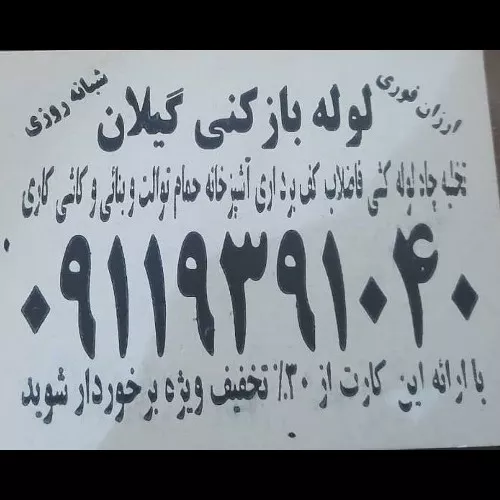 ارزان فوری
لوله بازکنی گیلان
شبانه روزی
تخلیه چاه لوله کشی فاضلاب کف برداری آشپزخانه حمام توالت و بنائی و کاشی کاری
۰۹۱۱۹۳۹۱۰۴۰
با ارائه این کارت از ۳۰٪ تخفیف ویژه برخوردار شوید